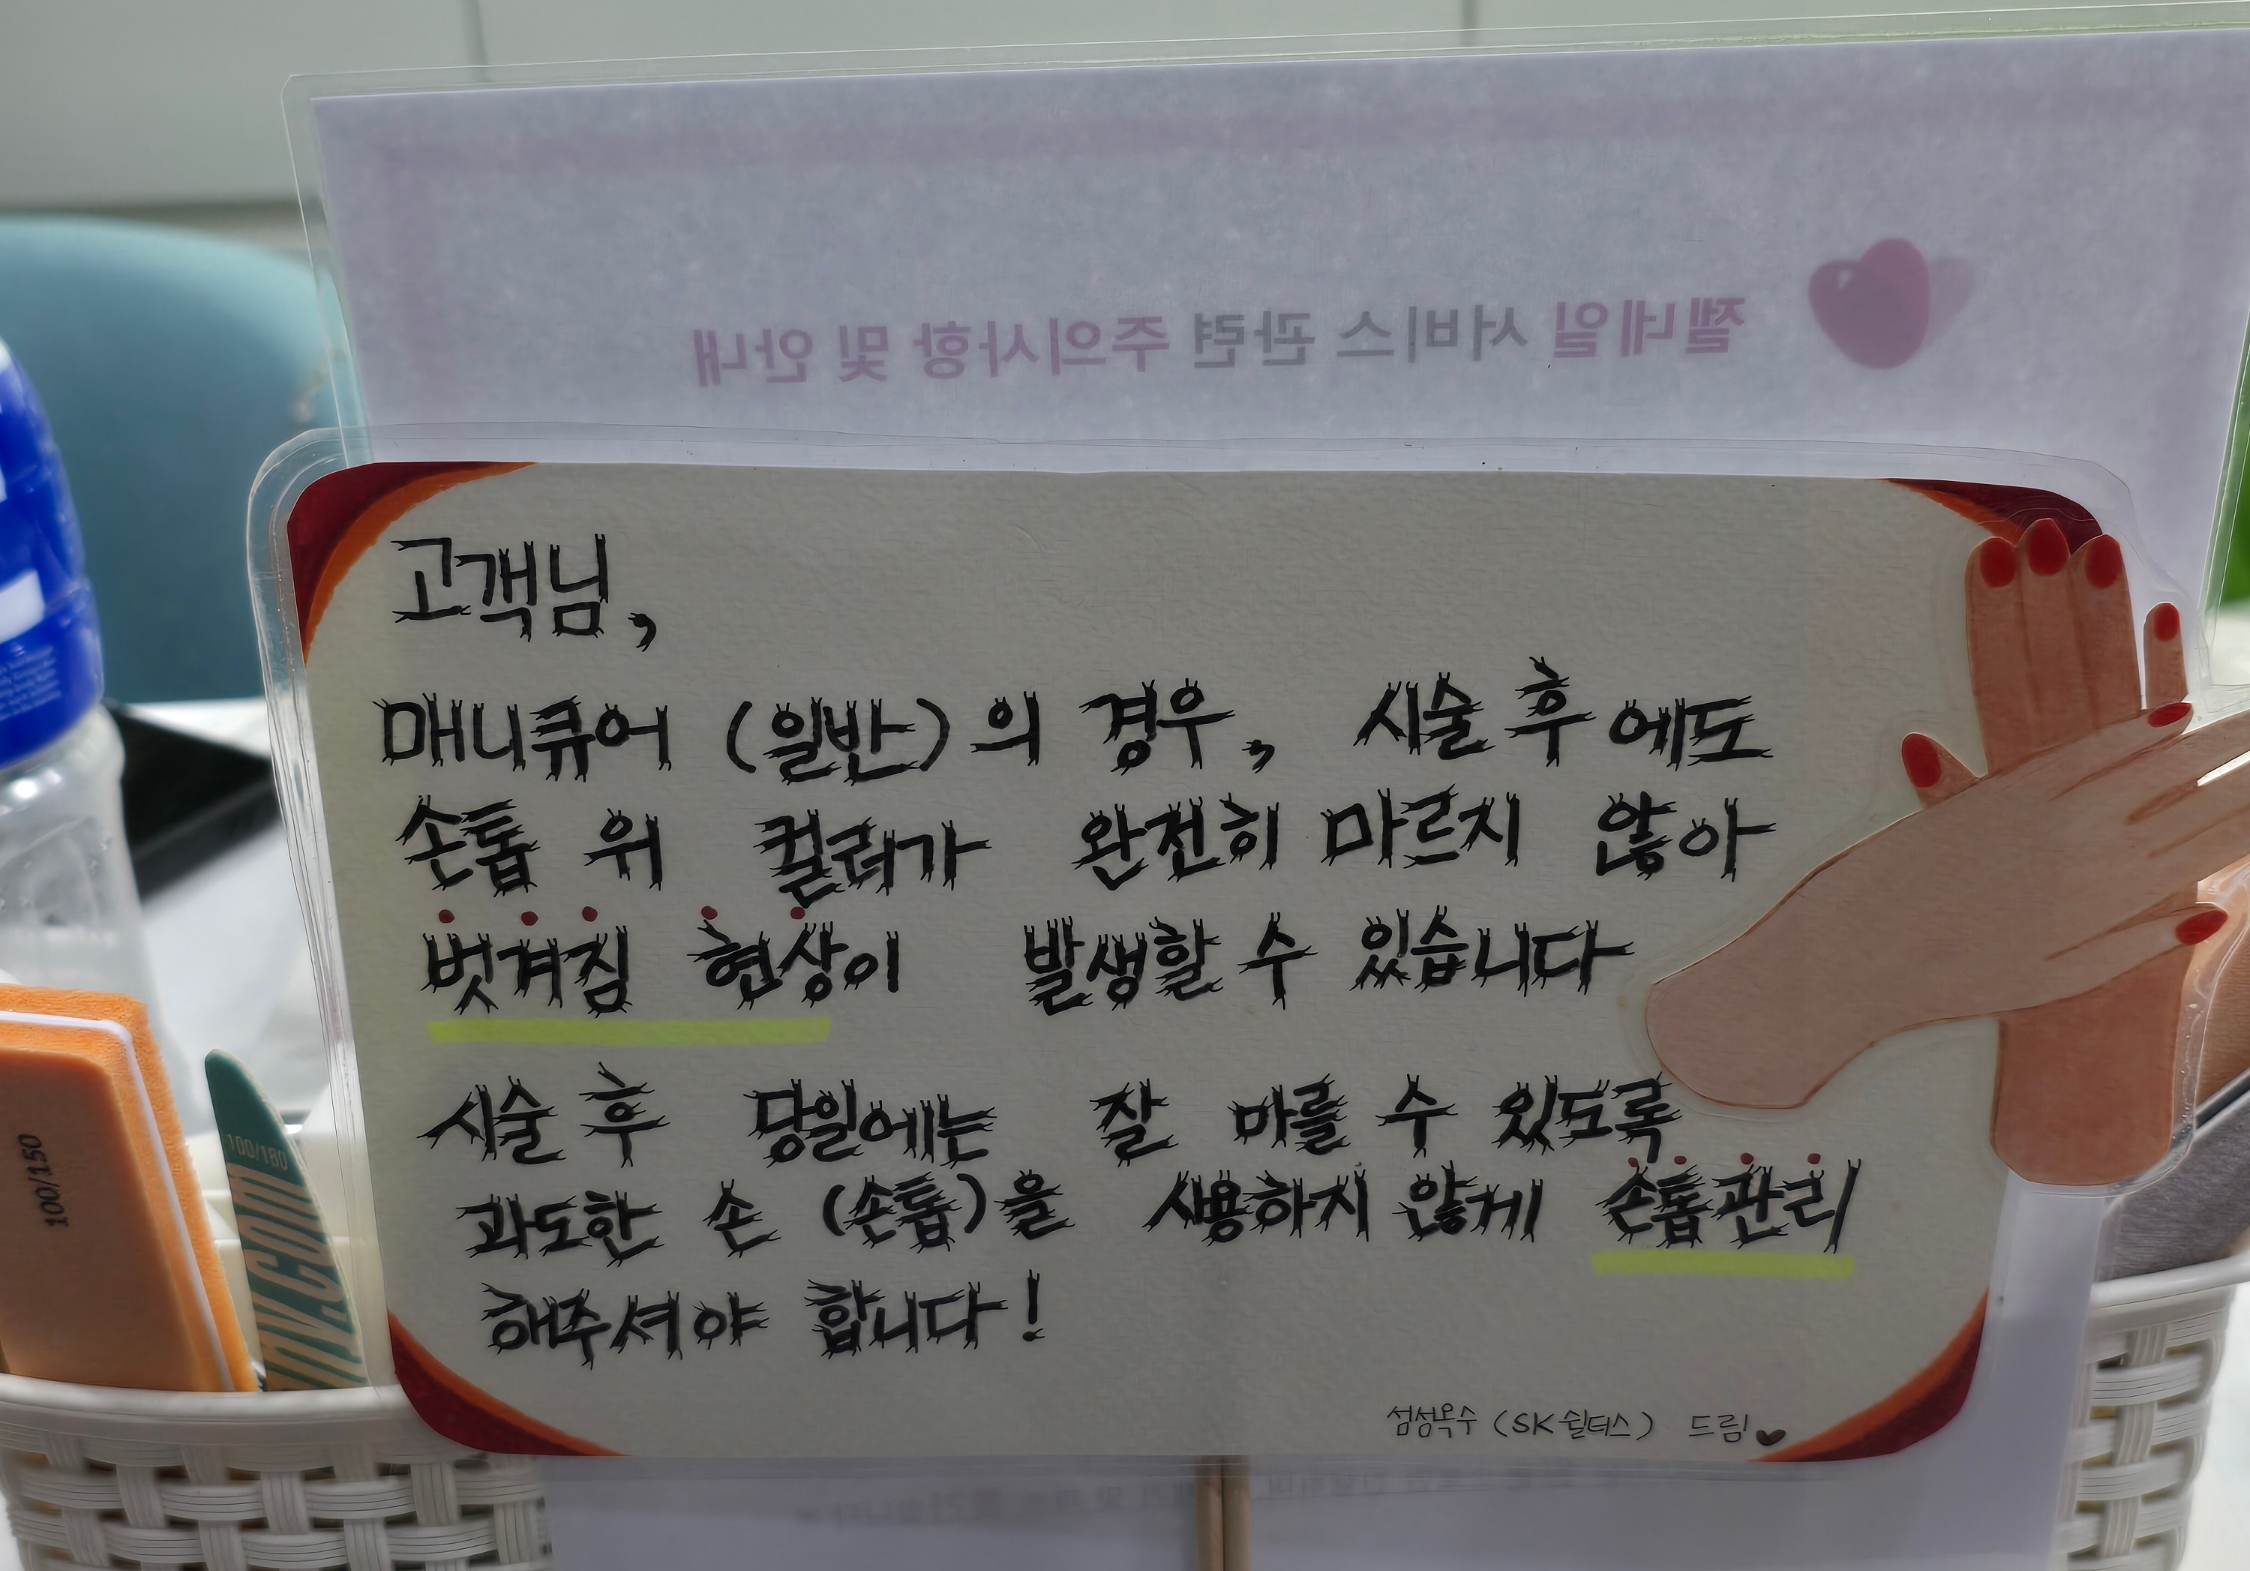 젤네일 서비스 관련 주의사항 및 안내
고객님,
매니큐어 (일반)의 경우, 시술 후에도
손톱 위 컬러가 완전히 마르지 않아
벗겨짐 현상이 발생할 수 있습니다
시술 후 당일에는 잘 마를 수 있도록
과도한 손 (손톱)을 사용하지 않게 손톱관리
해주셔야 합니다!
섬섬옥수 (SK쉴더스) 드림
100/150
100/180